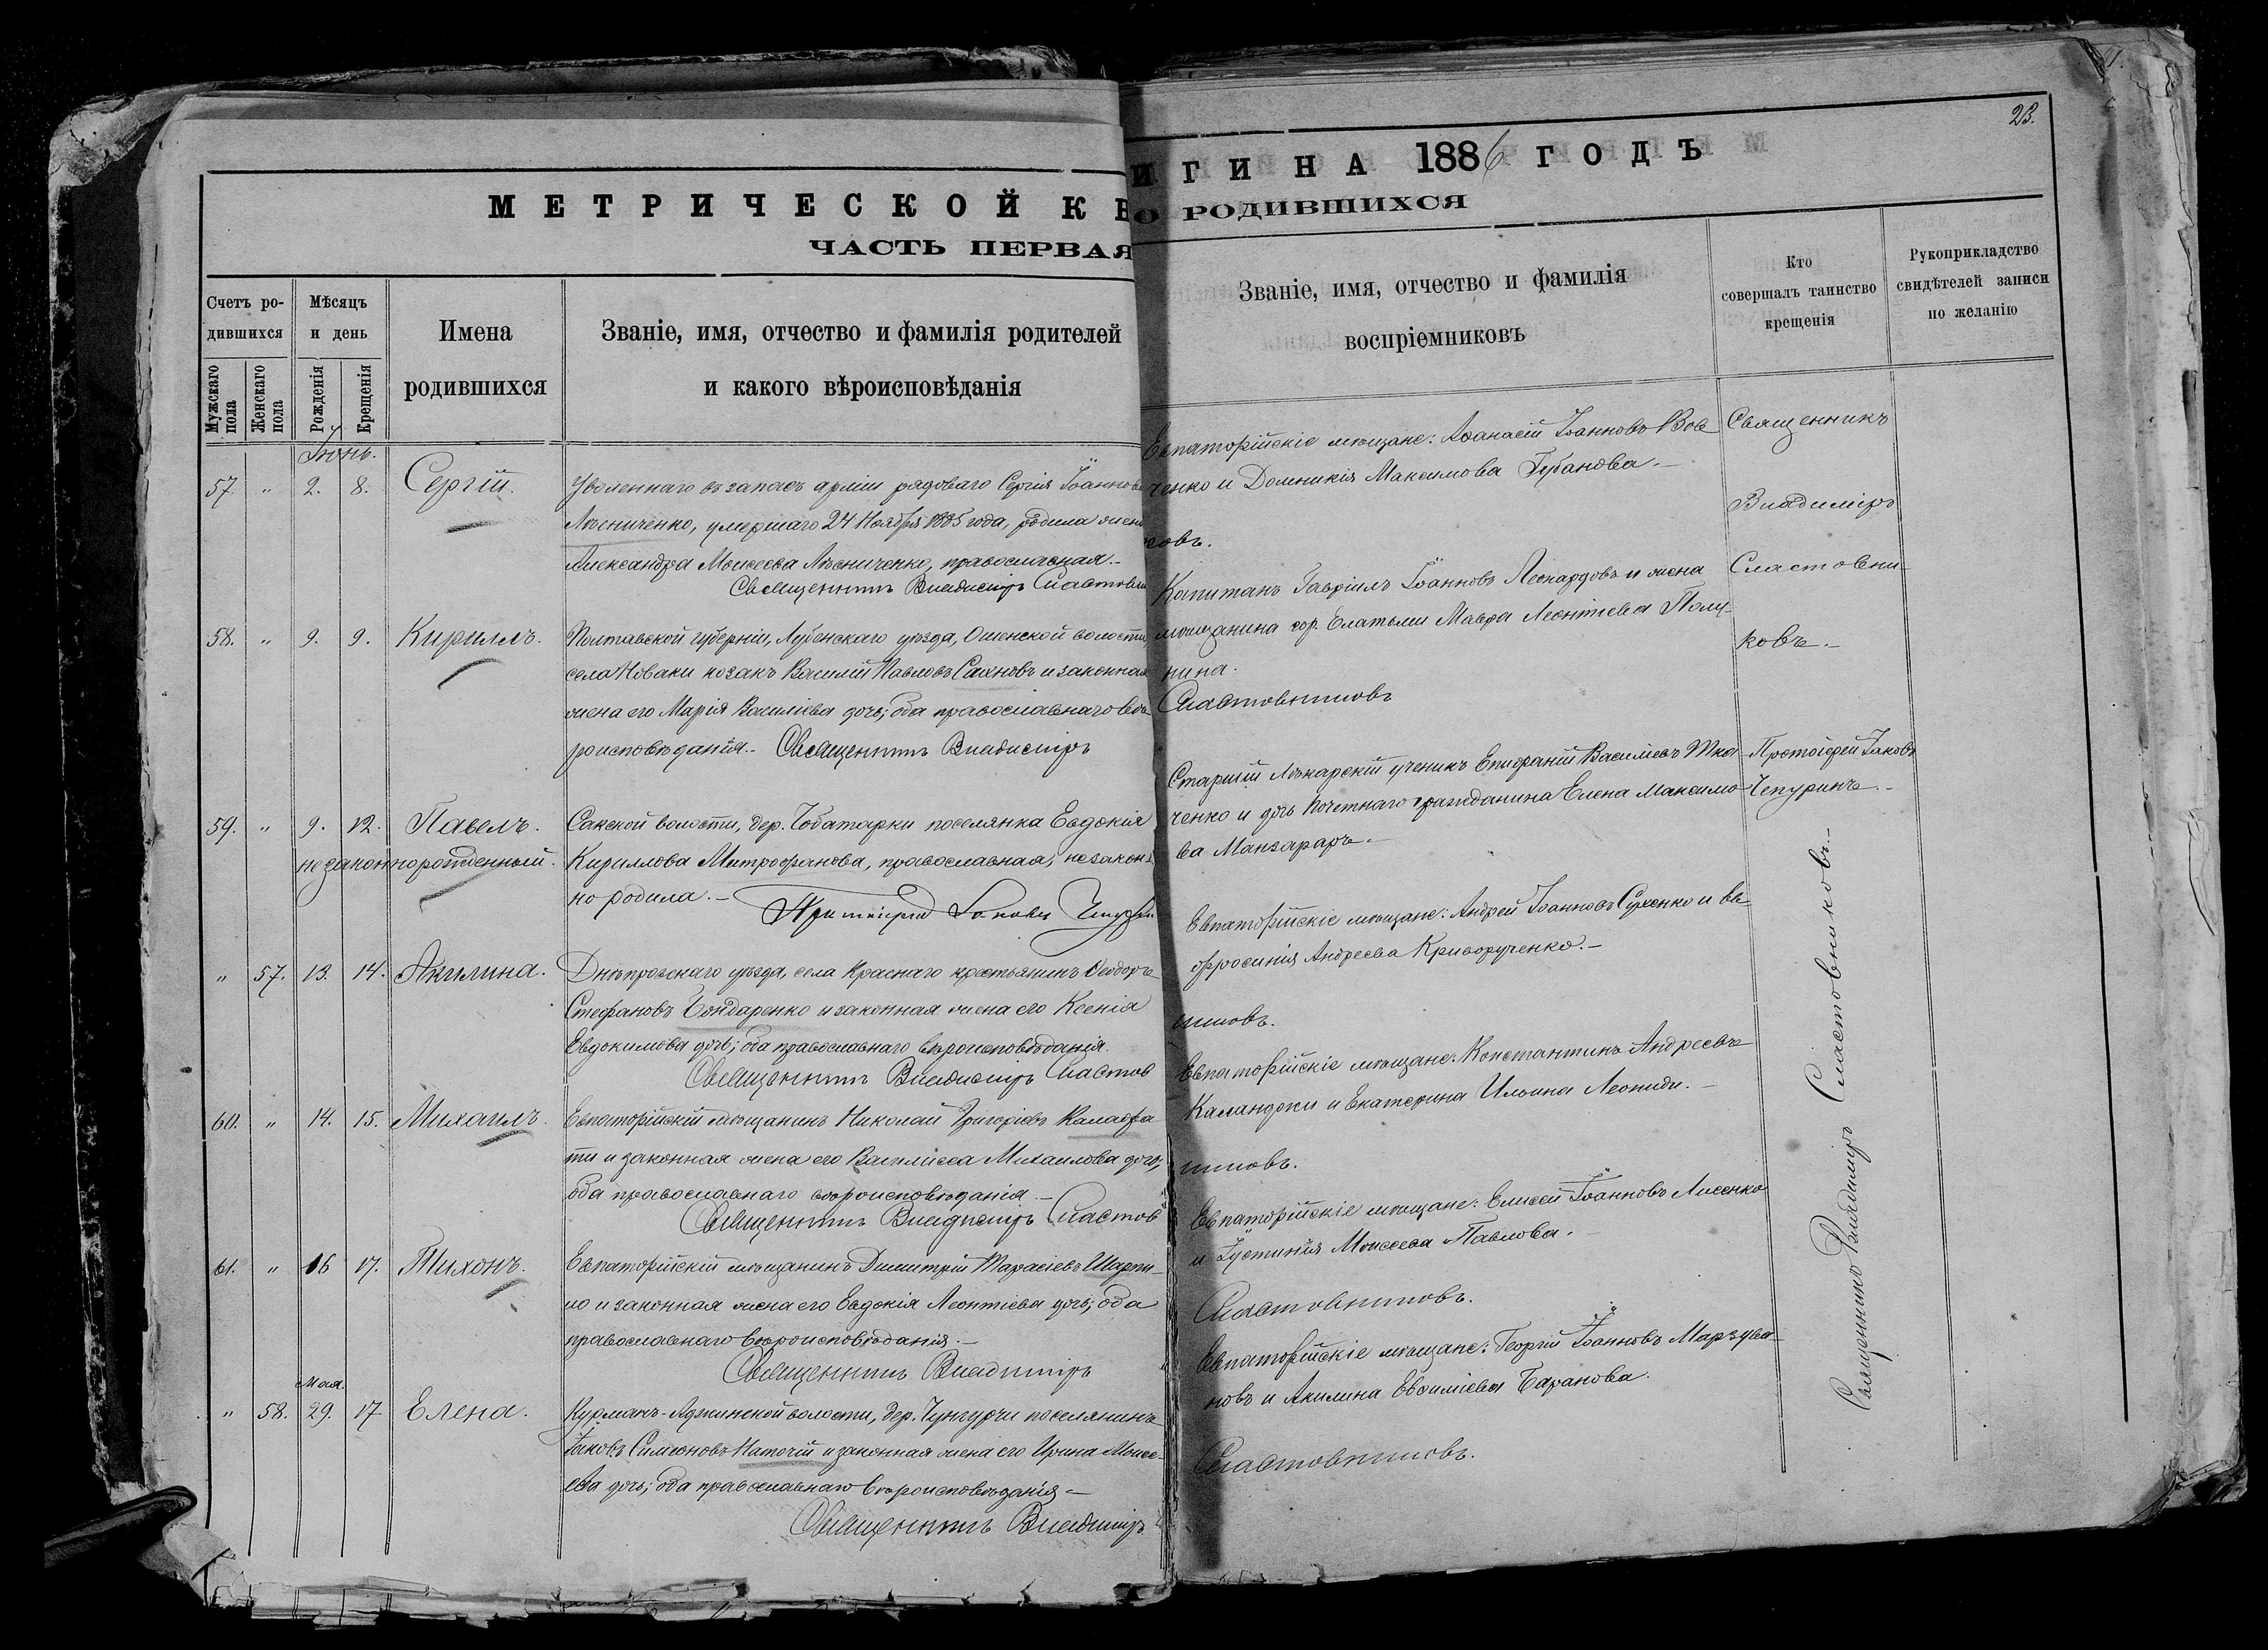 23.
МЕТРИЧЕСКОЙ К
ЧАСТЬ ПЕРВАЯ
ИГИ НА 1886 ГОДЪ
О РОДИВШИХСЯ
Счетъ ро-
дившихся
Мужскаго пола
Женскаго пола
Мѣсяцъ
и день
Рожденія
Крещенія
Имена
родившихся
Званіе, имя, отчество и фамилія родителей
и какого вѣроисповѣданія
Званіе, имя, отчество и фамилія
воспріемниковъ
Кто
совершалъ таинство
крещенія
Рукоприкладство
свидѣтелей записи
по желанію
Іюнь.
57. " 2. 8. Сергій.
Уволеннаго въ запасъ арміи рядоваго Сергія Іоаннова
Лѣсниченко, умершаго 24 Ноября 1885 года, родила жена
Александра Моисеева Лѣсниченко, православная.-
Священникъ Владиміръ Сластовни
ковъ.
Евпаторійскіе мѣщане: Аѳанасій Іоанновъ Вов
ченко и Домникія Максимова Губанова.-
Священникъ
Владиміръ
Сластовни-
ковъ.-
58. " 9. 9. Кириллъ.
Полтавской губерніи, Лубенскаго уѣзда, волости,
села Новаки козакъ Василій Павловъ и законная
жена его Марія Василіева дочь; оба православнаго вѣ-
роисповѣданія.- Священникъ Владиміръ
Сластовниковъ
Капитанъ Гавріилъ Іоанновъ Леонардовъ и жена
мѣщанина гор. Елатьмы Мавра Леонтіева Полу-
нина.
59. " 9. 12. Павелъ.
незаконнорожденный.
Сакской волости, дер. Чоботарки поселянка Евдокія
Кириллова Митрофанова, православная, незакон-
но родила.-
Протоіерей Іаковъ Чепурин
Старшій лѣкарскій ученикъ Епифаній Василіевъ Тка-
ченко и дочь почетнаго гражданина Елена Максимо-
ва Манзараръ.-
Протоіерей Іаковъ
Чепуринъ.-
" 57. 13. 14. Акилина.
Днѣпровскаго уѣзда, села Краснаго крестьянинъ Ѳеодоръ
Стефановъ Бондаренко и законная жена его Ксенія
Евдокимова дочь; оба православнаго вѣроисповѣданія.
Священникъ Владиміръ Сластов
никовъ.
Евпаторійскіе мѣщане: Андрей Іоанновъ Сухенко и Ев-
фросинія Андреева Криворученко.-
60. " 14. 15. Михаилъ.
Евпаторійскій мѣщанинъ Николай Григоріевъ Калафа
ти и законная жена его Василисса Михаилова дочь;
оба православнаго вѣроисповѣданія.-
Священникъ Владиміръ Сластов
никовъ.
Евпаторійскіе мѣщане: Константинъ Андреевъ
Каланджи и Екатерина Ильина Леониди.-
61. " 16 17. Тихонъ.
Евпаторійскій мѣщанинъ Димитрій Тарасіевъ Шарпи-
ло и законная жена его Евдокія Леонтіева дочь; оба
православнаго вѣроисповѣданія.-
Священникъ Владиміръ
Сластовниковъ.
Евпаторійскіе мѣщане: Елисей Іоанновъ Лисенко
и Іустинія Моисеева Павлова.
Мая.
" 58. 29. 17 Елена.
Курманъ-Аджинской волости, дер. поселянинъ
Іаковъ Симеоновъ и законная жена его Ирина Моисе-
ева дочь; оба православнаго вѣроисповѣданія-
Священникъ Владиміръ
Сластовниковъ.
Евпаторійскіе мѣщане: Георгій Іоанновъ Марзува-
новъ и Акилина Евѳиміева Баранова.
Священникъ Владиміръ Сластовниковъ.-